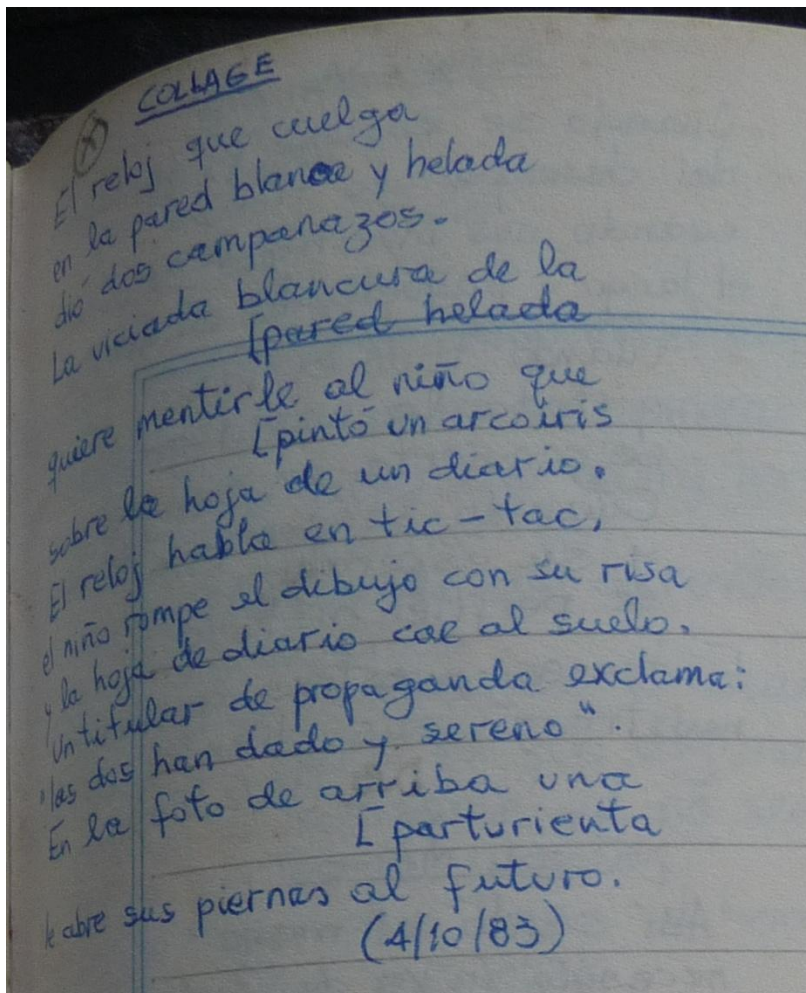 COLLAGE
El reloj que cuelga
en la pared blanca y helada
dió dos campanazos.
La viciada blancura de la
[pared helada
quiere mentirle al niño que
[pintó un arcoiris
sobre la hoja de un diario.
El reloj habla en tic-tac,
el niño rompe el dibujo con su risa
y la hoja de diario cae al suelo.
Un titular de propaganda exclama:
"las dos han dado y sereno".
En la foto de arriba una
[parturienta
le abre sus piernas al futuro.
(4/10/83)